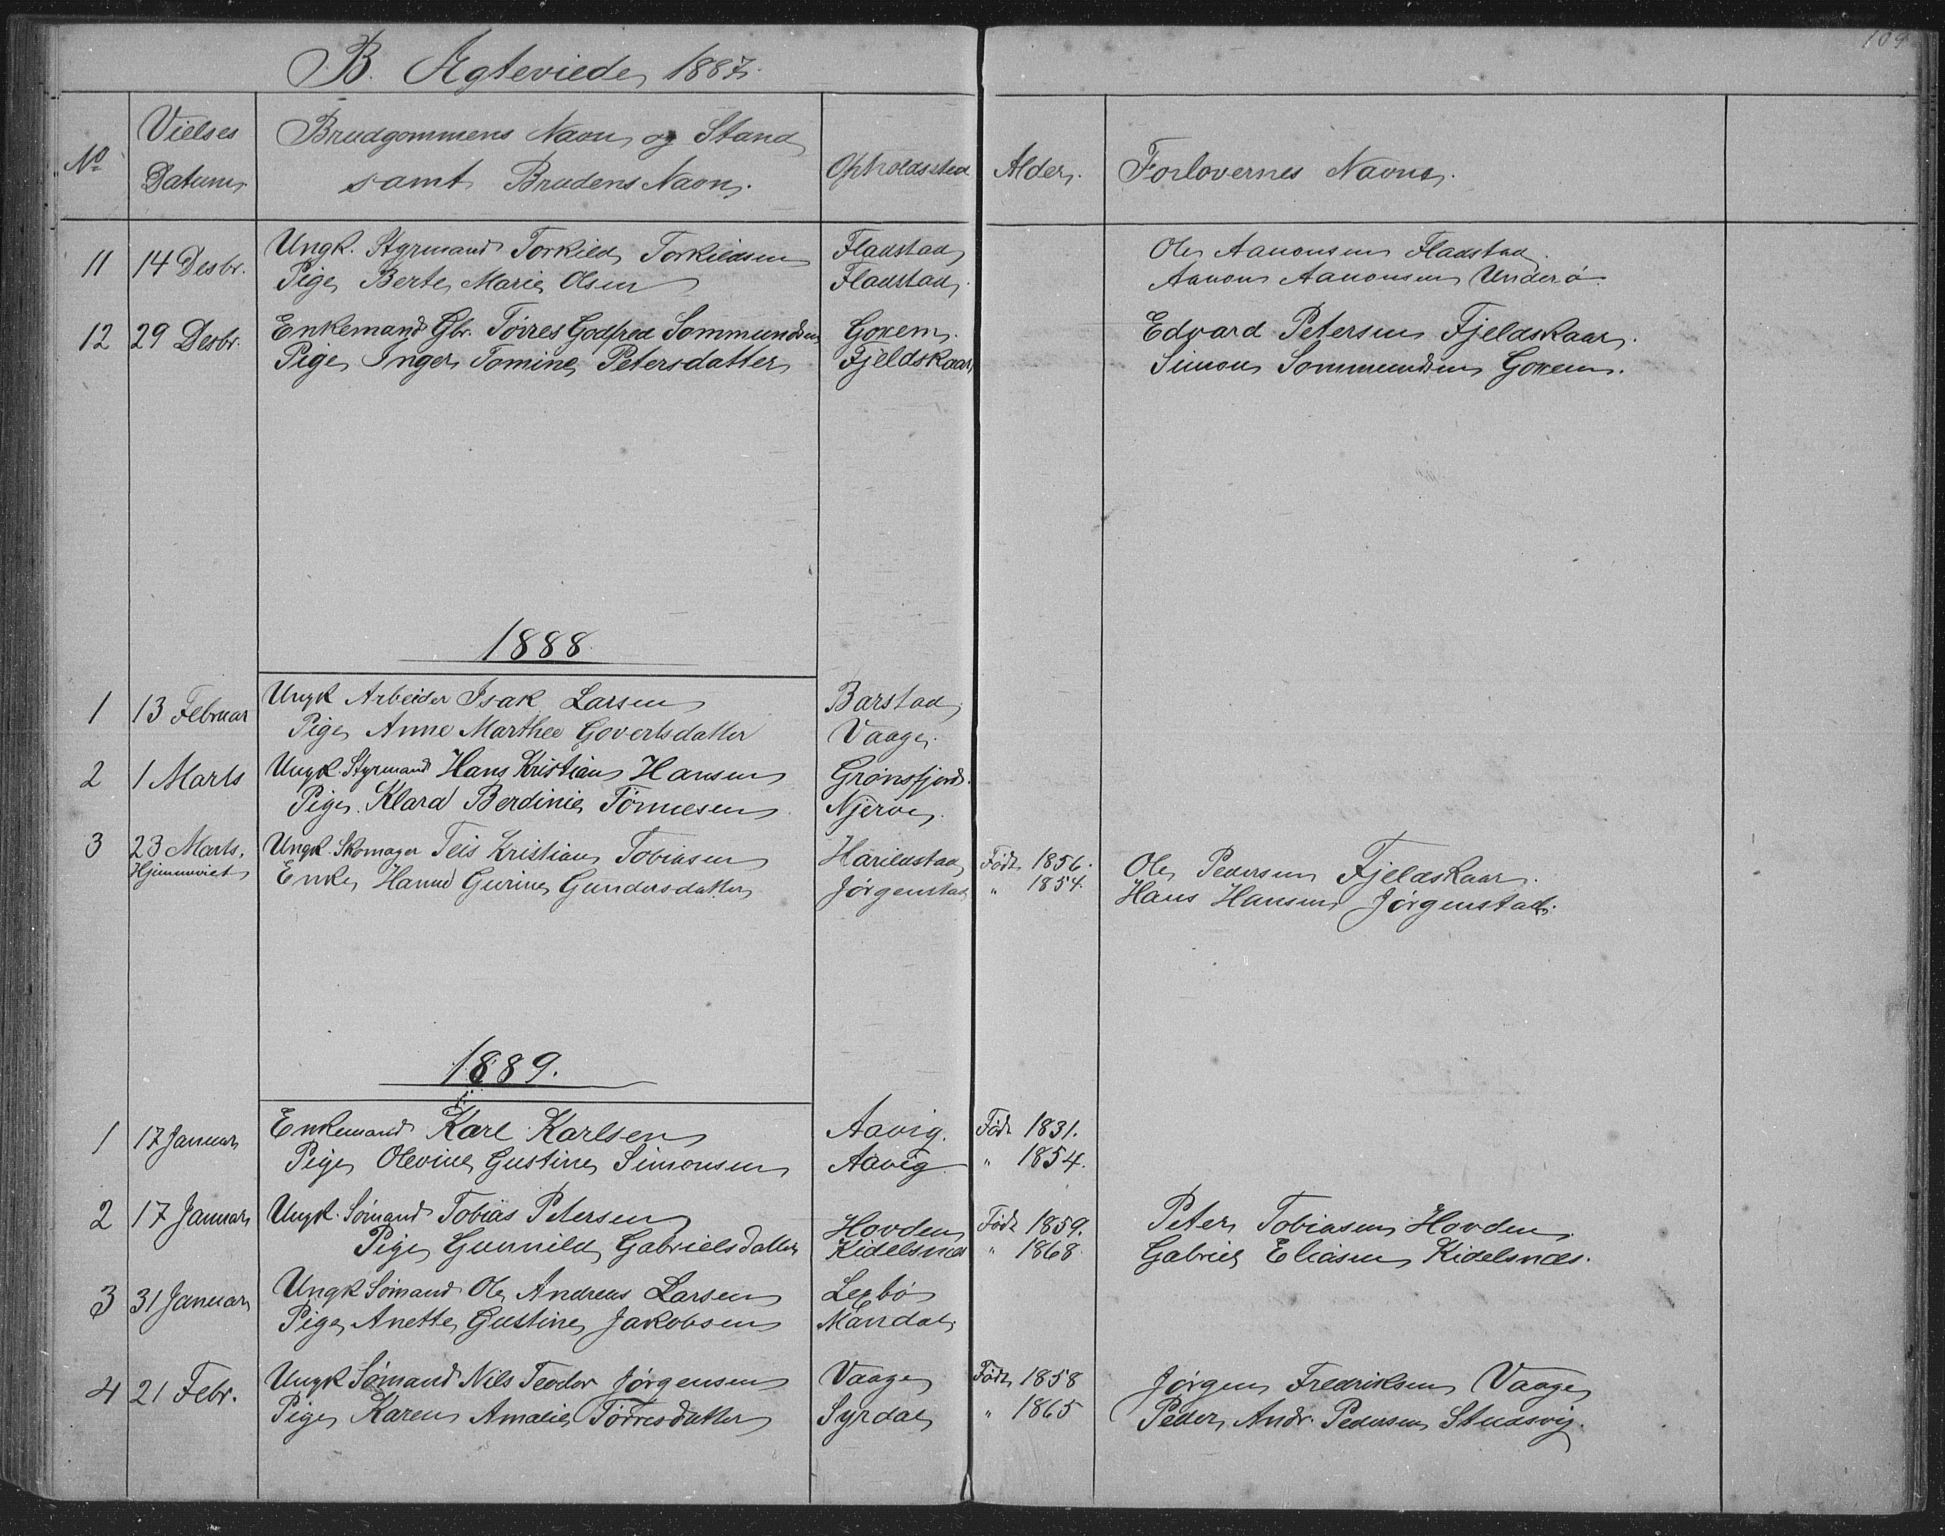 109
B. Ægteviede, 1887.
No Vielses Datum Brudgommens Navn og Stand samt Brudens Navn. Opholdssted Alder. Forlovernes Navne.
11 14 Desbr. Ungk. Styrmand Torkild Torkildsen Fladstad Ole Aanonsen Fladstad.
Pige Berte Marie Olsen Fladstad. Aanon Aanonsen Underø
12 29 Desbr. Enkemand Gbr. Tørres Godfred Sommundsen Goxem. Edvard Petersen Fjeldskaar.
Pige Inger Tomine Petersdatter Fjeldskaar Simon Sommundsen Goxem.
1888
1 13 Februar Ungk Arbeider Isak Larsen Barstad
Pige Anne Marthee Govertsdatter Vaage.
2 1 Marts Ungk. Styrmand Hans Kristian Hansen Grønsfjord.
Pige. Klara Berdinie Tønnesen Njerve.
3 23 Marts. Ungk. Skomager Teis Kristian Tobiasen Harilastad Født 1856. Ole Pedersen Fjeldskaar.
Hjemmeviet Enke Hanne Gurine Gundersdatter Jørgenstad " 1854. Hans Hansen Jørgenstad.
1889.
1 17 Januar Enkemand Karl Karlsen Aavig. Født 1831.
Pige Olevine Gustine Simonsen Aavig " 1854.
2 17 Januar Ungk. Sømand Tobias Petersen Hovden Født 1859. Peter Tobiasen Hovden.
Pige Gunnild Gabrielsdatter Kidelsnæs " 1868. Gabriel Eliasen Kidelsnæs.
3 31 Januar Ungk Sømand Ole Andreas Larsen Lexbø
Pige Anette Gustine Jakobsen Mandal
4 21 Febr. Ungk Sømand Nils Teodor Jørgensen Vaage Født 1858 Jørgen Fredriksen Vaage
Pige Karen Amalie Tørresdatter Syrdal " 1865 Peder Andr. Pedersen Studsvig.